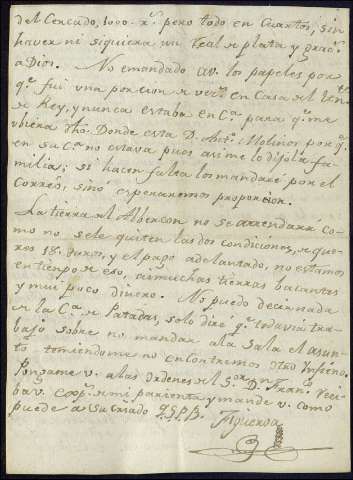 del Cercado, 1000 r.s pero todo en Cuartos, sin
haver ni siquiera un Real de plata y grac.s
a Dios. No e mandado a v. los papeles por
q.e fui una porcion de vezes en Casa del
de Rey, y nunca estaba en C.a para q.e me
ubiera dho. Donde esta D. Ant.o Molinos por q.e
en su C.a no estava pues asi me lo dijo la fa
milia; si hacen falta los mandaré por el
Correo, sinó esperaremos proporcion.
La tierra del Albercon no se arrendará co-
mo no se le quiten las dos condiciones, de que
ros 18. duros, y el pago adelantado, no estamos
en tiempo de eso, ai muchas tierras bacantes
y mui poco dinero. No puedo decir nada
de la C.a de Patadas, solo diré q.e todavia tra-
bajo sobre no mandar a la Sala el asun-
to temiendome no encontremos otro
Pongame v. a las Ordenes del S.or D.n Fran.co reci
ba v. de mi parienta y mande v. como
puede a su criado Q.S.P.B.
Figueroa